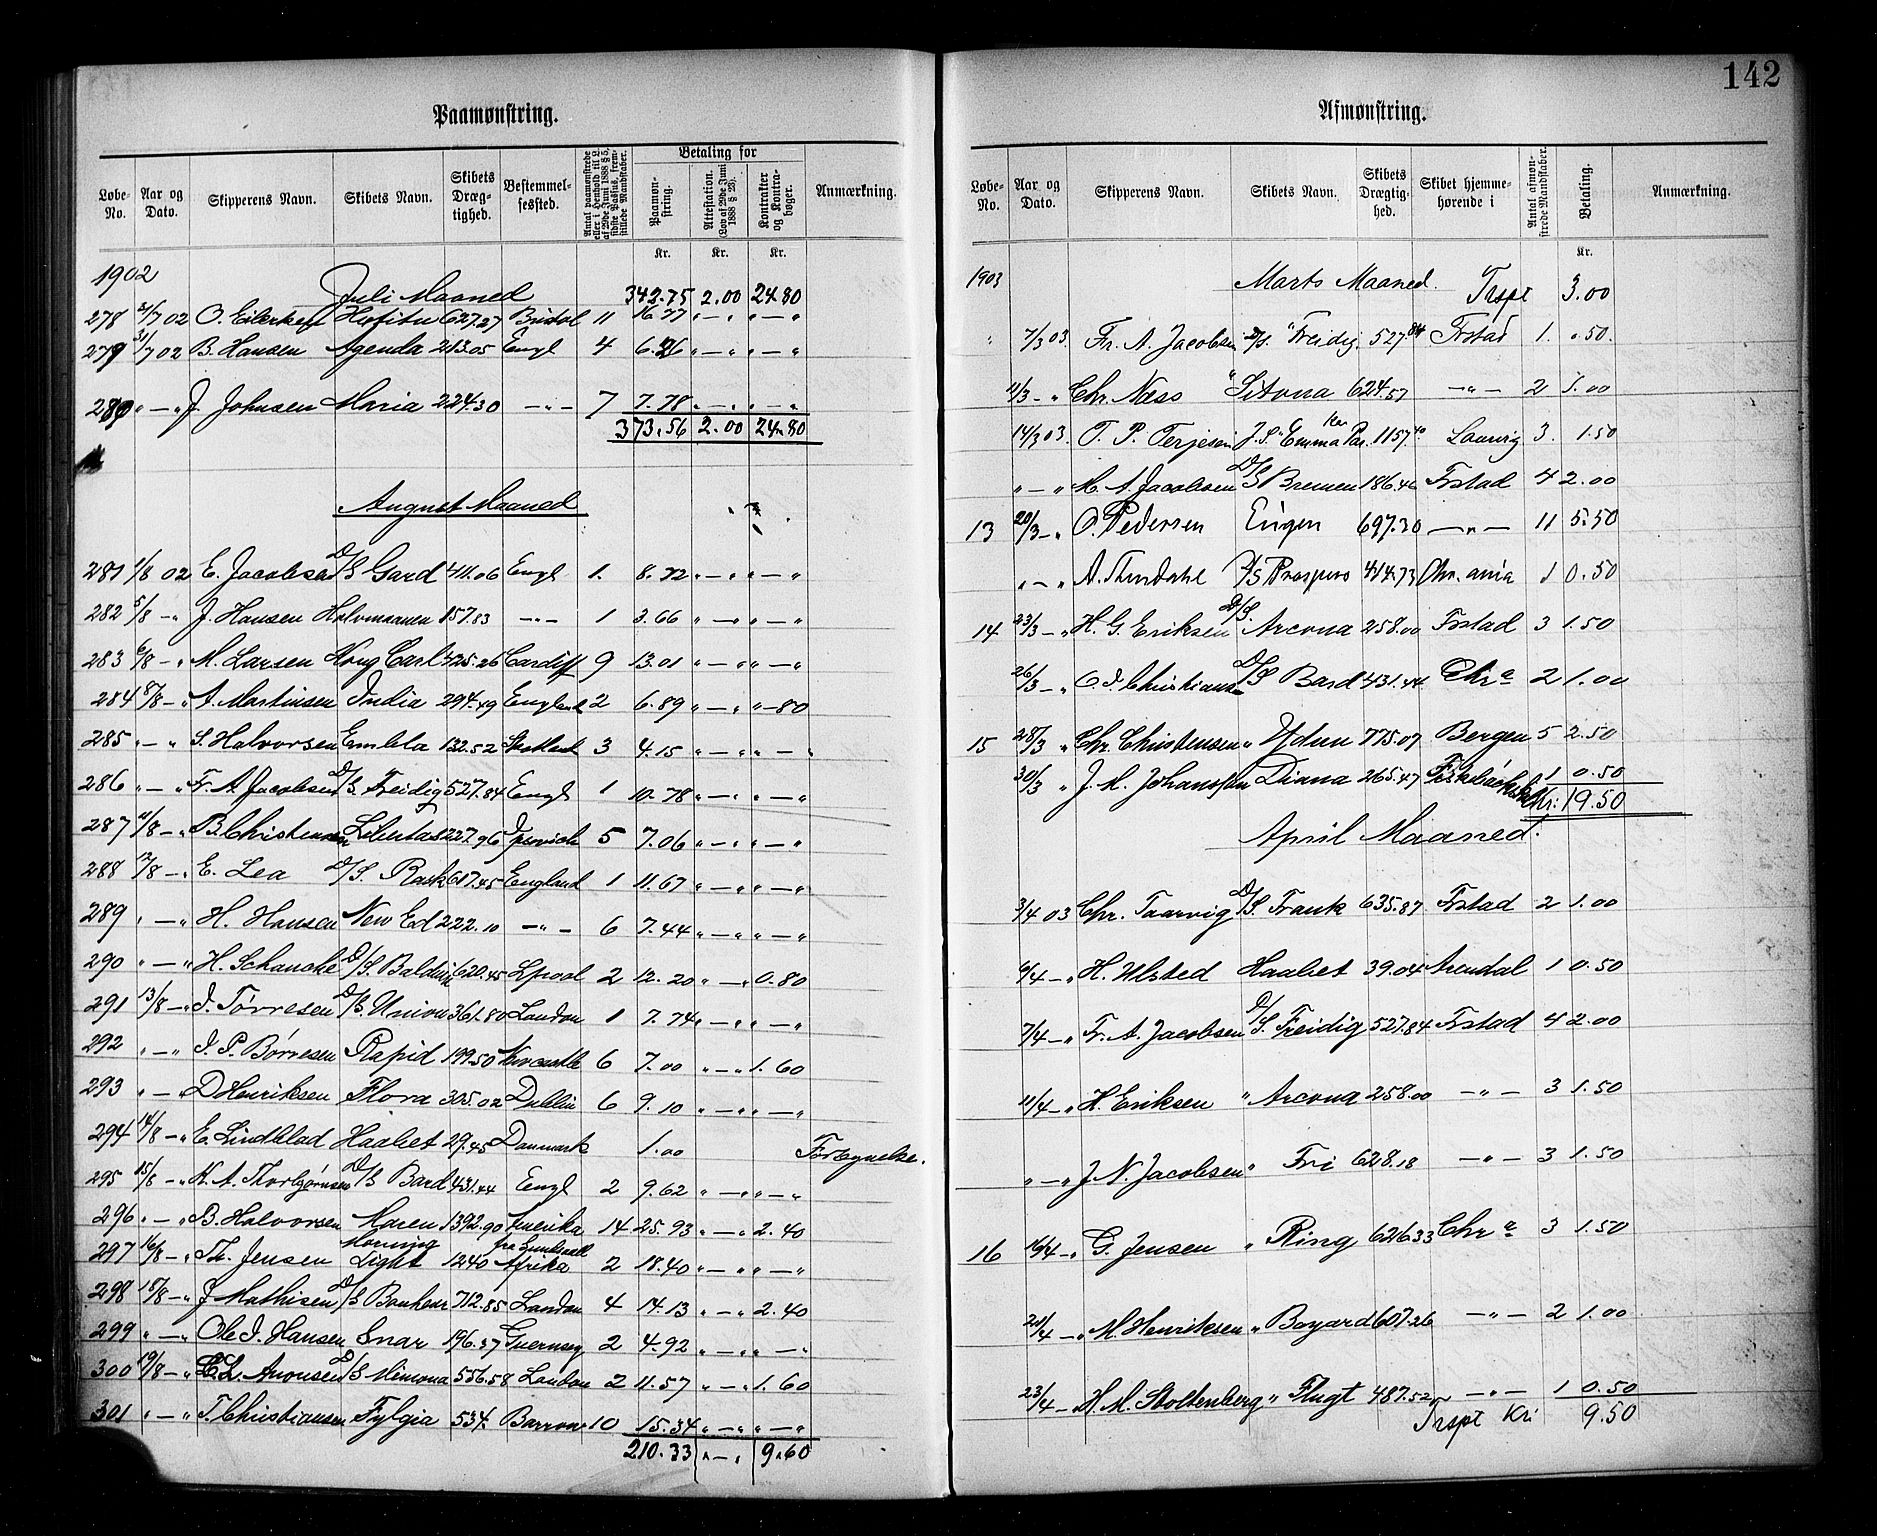 142
Paamønstring.
Løbe-No. Aar og Dato. Skipperens Navn. Skibets Navn. Skibets Dræg-tighed. Bestemmel-sessted. Antal paamønstrede eller i Henhold til L. af 29de Juni 1888 § 5, sidste Passus, frem-stillede Mandskaber. Betaling for Paamøn-string. Attestation. (Lov af 29de Juni 1888 § 23). Kontrakter og Kontra-bøger. Anmærkning.
Kr. Kr. Kr.
1902
Juli Maaned 342.75 2.00 24.80
278 31/7 02 O. Eilertsen 627.27 Bristol 11 16.77 " — " " — "
279 31/7 02 B. Hansen Agenda 213.05 Engl 4 6.26 " — " " — "
280 " — " J. Johnsen Maria 224.30 — " — 7 7.78 " — " " — "
373.56 2.00 24.80
August Maaned
281 1/8 02 E. Jacobsen D/S Gard 411.06 Engl. 1. 8.72 " — " " — "
282 5/8 — " J. Hansen Halvmaanen 157.83 — " — 1 3.66 " — " " — "
283 6/8 — " M. Larsen Kong Carl 425.26 Cardiff 9 13.01 " — " " — "
284 8/8 — " A. Martinsen India 294.49 England 2 6.89 " — " " — 80
285 " — " S. Halvorsen Embla 132.52 3 4.15 " — " " — "
286 " — " Fr. A. Jacobsen D/S Freidig 527.84 Engl 1 10.78 " — " " — "
287 11/8 — " B. Christensen Libertas 227.96 Ipswich 5 7.06 " — " " — "
288 12/8 — " E. Lea D/S. Rask 617.45 England 1 11.67 " — " " — "
289 " — " H. Hansen New Ed 222.10 — " — 6 7.44 " — " " — "
290 " — " H. Schanche D/S. Baldwin 620.45 Lpool 2 12.20 " — " 0.80
291 13/8 — " I. Tørresen D/S. Union 361.80 London 1 7.74 " — " " — "
292 " — " I. P. Børresen Rapid 199.50 Newcastle 6 7.00 " — " 1.60
293 " — " D Henriksen Flora 305.02 Dublin 6 9.10 " — " " — "
294 14/8 — " E. Lindblad Haabet 29.45 Danmark 1.00 Forbyndelse.
295 15/8 — " N. A. Thorbjørnsen D/S Bard 431.44 Engl 2 9.62 " — " " — "
296 " — " B. Halvorsen Maren 1392.90 Amerika 14 25.93 " — " 2.40
297 16/8 — " Th. Jensen Morning Light 1240 Afrika 2 18.40 " — " " — "
298 18/8 — " J Mathisen D/S Bonheur 712.85 London 4 14.13 " — " 2.40
299 " — " Ole I. Hansen Snar 196.37 Guernsey 2 4.92 " — " " — "
300 19/8 — " L. Aronsen D/S Mimona 556.58 London 2 11.57 " — " 1.60
301 " — " T. Christiansen Fylgia 534. Barrow 10 15.34 " — " " — "
210.33 " — " 9.60
Afmønstring.
Løbe-No. Aar og Dato. Skipperens Navn. Skibets Navn. Skibets Drægtig-hed. Skibet hjemme-hørende i Antal afmøn-strede Mandskaber. Betaling. Anmærkning.
Kr.
1903 Marts Maaned. Trspt 3.00
" 7/3 03. Fr. A. Jacobsen D/S. "Freidig. 527.84 Frstad 1. ".50.
11/3 — " Chr. Næss " Sitona 624.57 — " — 2 1.00
14/3 03. T. P. Terjesen J.S. "Emma Par. 1157.40 Laurvig 3. 1.50
" — " M. A. Jacobsen D/S Bremen 186.46 Frstad 4 2.00
13 20/3 — " O. Pedersen Eugen 697.30 — " — 11 5.50
" — " A. Thindahl D/S Prospero 414.73 Chr. ania 1 0.50
14 23/3 — " H. G. Eriksen D/S. Arcona 258.00 Frstad 3 1.50
26/3 — " O. I. Christiansen D/S Bard 431.44 Chra 2 1.00
15 28/3 " Chr. Christensen " Ydun 775.07 Bergen 5 2.50
30/3 " J. M. Johansson Diana 265.47 1 0.50
Kr: 19.50
April Maaned.
3/4 03 Chr. Taarvig D/S. Frank 635.87 Frstad 2 1.00
6/4 — " H. Ulsted Haabet 39.04 Arendal 1 0.50
7/4 — " Fr. A. Jacobsen D/S. Freidig 527.84 Frstad 4 2.00
11/4 — " H. Eriksen " Arcona 258.00 — " — 3 1.50
" — " J. N. Jacobsen " Fri 628.18 — " — 3 1.50
16 16/4 — " G. Jensen " Ring 626.33 Chra 3 1.50
20/4 — " M. Henriksen " Bayard 607.26 — " — 2 1.00
23/4 — " H. M. Stoltenberg " Flugt 487.52 — " — 1 0.50
Trspt Kr: 9.50